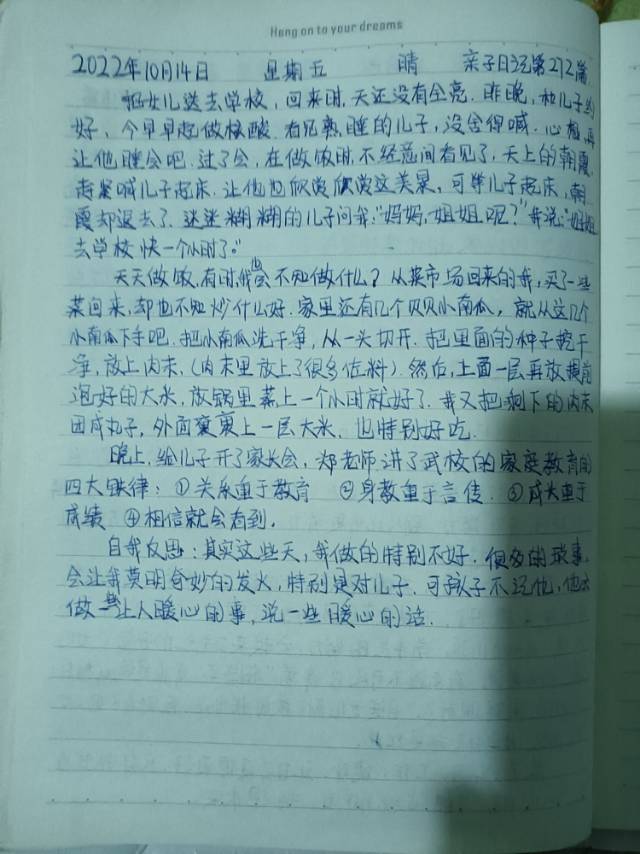 Hang on to your dreams
2022年10月14日 星期五 晴 亲子日记第272篇
把女儿送去学校，回来时，天还没有全亮．昨晚，和儿子约
好，今早早起做核酸．看见熟睡的儿子，没舍得喊．心想，再
让他睡会吧．过了会，在做饭时，不经意间看见了，天上的朝霞，
赶紧喊儿子起床．让他也欣赏欣赏这美景，可等儿子起床，朝
霞却退去了．迷迷糊糊的儿子问我：“妈妈，姐姐呢？”我说：“姐姐
去学校快一个小时了。”
天天做饭，有时我也会不知做什么？从菜市场回来的我，买了一些
菜回来，却也不知炒什么好．家里还有几个贝贝小南瓜，就从这几个
小南瓜下手吧．把小南瓜洗干净，从一头切开．把里面的种子挖干
净，放上肉末，（肉末里放上了很多佐料）．然后，上面一层再放提前
泡好的大米，放锅里蒸上一个小时就好了．我又把剩下的肉末
团成丸子，外面裹裹上一层大米，也特别好吃．
晚上，给儿子开了家长会，郑老师讲了武校的家庭教育的
四大铁律：①关系重于教育 ②身教重于言传．③成长重于
成绩 ④相信就会看到．
自我反思：其实这些天，我做的特别不好．很多的琐事，
会让我莫明奇妙的发火，特别是对儿子．可孩子不记仇，他会
做一些让人暖心的事，说一些暖心的话．